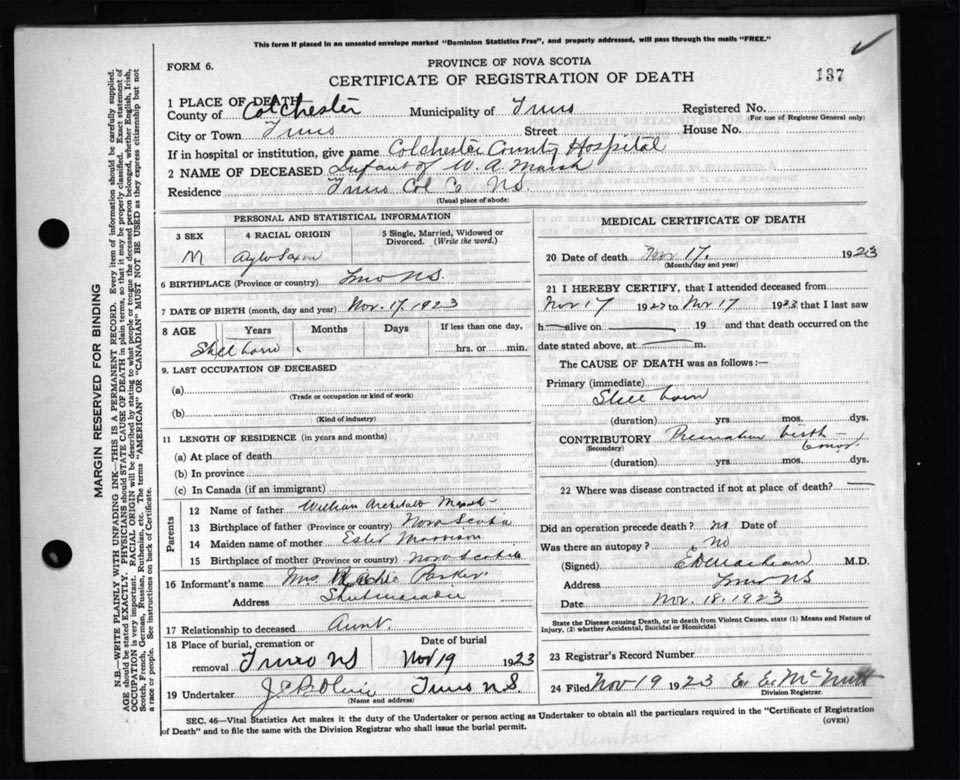 This form if placed in an unsealed envelope marked "Dominion Statistics Free", and properly addressed, will pass through the mails "FREE."
FORM 6.
PROVINCE OF NOVA SCOTIA
CERTIFICATE OF REGISTRATION OF DEATH
137
1 PLACE OF DEATH
County of Colchester Municipality of Truro Registered No.
(For use of Registrar General only)
City or Town Truro Street House No.
If in hospital or institution, give name Colchester County Hospital
2 NAME OF DECEASED Infant of W. A. Marsh
Residence Truro Col Co NS.
(Usual place of abode)
PERSONAL AND STATISTICAL INFORMATION
3 SEX 4 RACIAL ORIGIN 5 Single, Married, Widowed or Divorced. (Write the word.)
M Anglo Saxon
6 BIRTHPLACE (Province or country) Truro NS.
7 DATE OF BIRTH (month, day and year) Nov. 17, 1923
8 AGE Years Months Days If less than one day,
Still born hrs. or min.
9. LAST OCCUPATION OF DECEASED
(a)
(Trade or occupation or kind of work)
(b)
(Kind of industry)
11 LENGTH OF RESIDENCE (in years and months)
(a) At place of death
(b) In province
(c) In Canada (if an immigrant)
Parents
12 Name of father William Archibald Marsh
13 Birthplace of father (Province or country) Nova Scotia
14 Maiden name of mother Ester Morrison
15 Birthplace of mother (Province or country) Nova Scotia
16 Informant's name Mrs. Parker
Address Shubenacadie
17 Relationship to deceased Aunt.
18 Place of burial, cremation or removal Truro NS Date of burial Nov 19 1923
19 Undertaker Truro N.S.
(Name and address)
MEDICAL CERTIFICATE OF DEATH
20 Date of death Nov 17, 1923
(Month/day and year)
21 I HEREBY CERTIFY, that I attended deceased from
Nov 17 1923 to Nov 17 1923 that I last saw
h alive on 19 and that death occurred on the
date stated above, at m.
The CAUSE OF DEATH was as follows:—
Primary (immediate)
Still born
(duration) yrs mos. dys.
CONTRIBUTORY Premature birth
(Secondary)
(duration) yrs mos. dys.
22 Where was disease contracted if not at place of death?
Did an operation precede death? no Date of
Was there an autopsy? no
(Signed) M.D.
Address Truro NS
Date Nov. 18. 1923
State the Disease causing Death, or in death from Violent Causes, state (1) Means and Nature of Injury, (2) whether Accidental, Suicidal or Homicidal
23 Registrar's Record Number
24 Filed Nov 19 1923 E. E. McNutt
Division Registrar.
SEC. 46—Vital Statistics Act makes it the duty of the Undertaker or person acting as Undertaker to obtain all the particulars required in the "Certificate of Registration of Death" and to file the same with the Division Registrar who shall issue the burial permit.
(OVER)
MARGIN RESERVED FOR BINDING
N.B.—WRITE PLAINLY WITH UNFADING INK—THIS IS A PERMANENT RECORD. Every item of information should be carefully supplied.
AGE should be stated EXACTLY. PHYSICIANS should STATE CAUSE OF DEATH in plain terms, so that it may be properly classified. Exact statement of
OCCUPATION is very important. RACIAL ORIGIN will be described by stating to what people or tongue the deceased person belonged, whether English, Irish,
Scotch, French, German, Russian, Ruthenian, etc. The terms "AMERICAN" or "CANADIAN" MUST NOT BE USED as they express citizenship but not
a race or people. See instructions on back of Certificate.